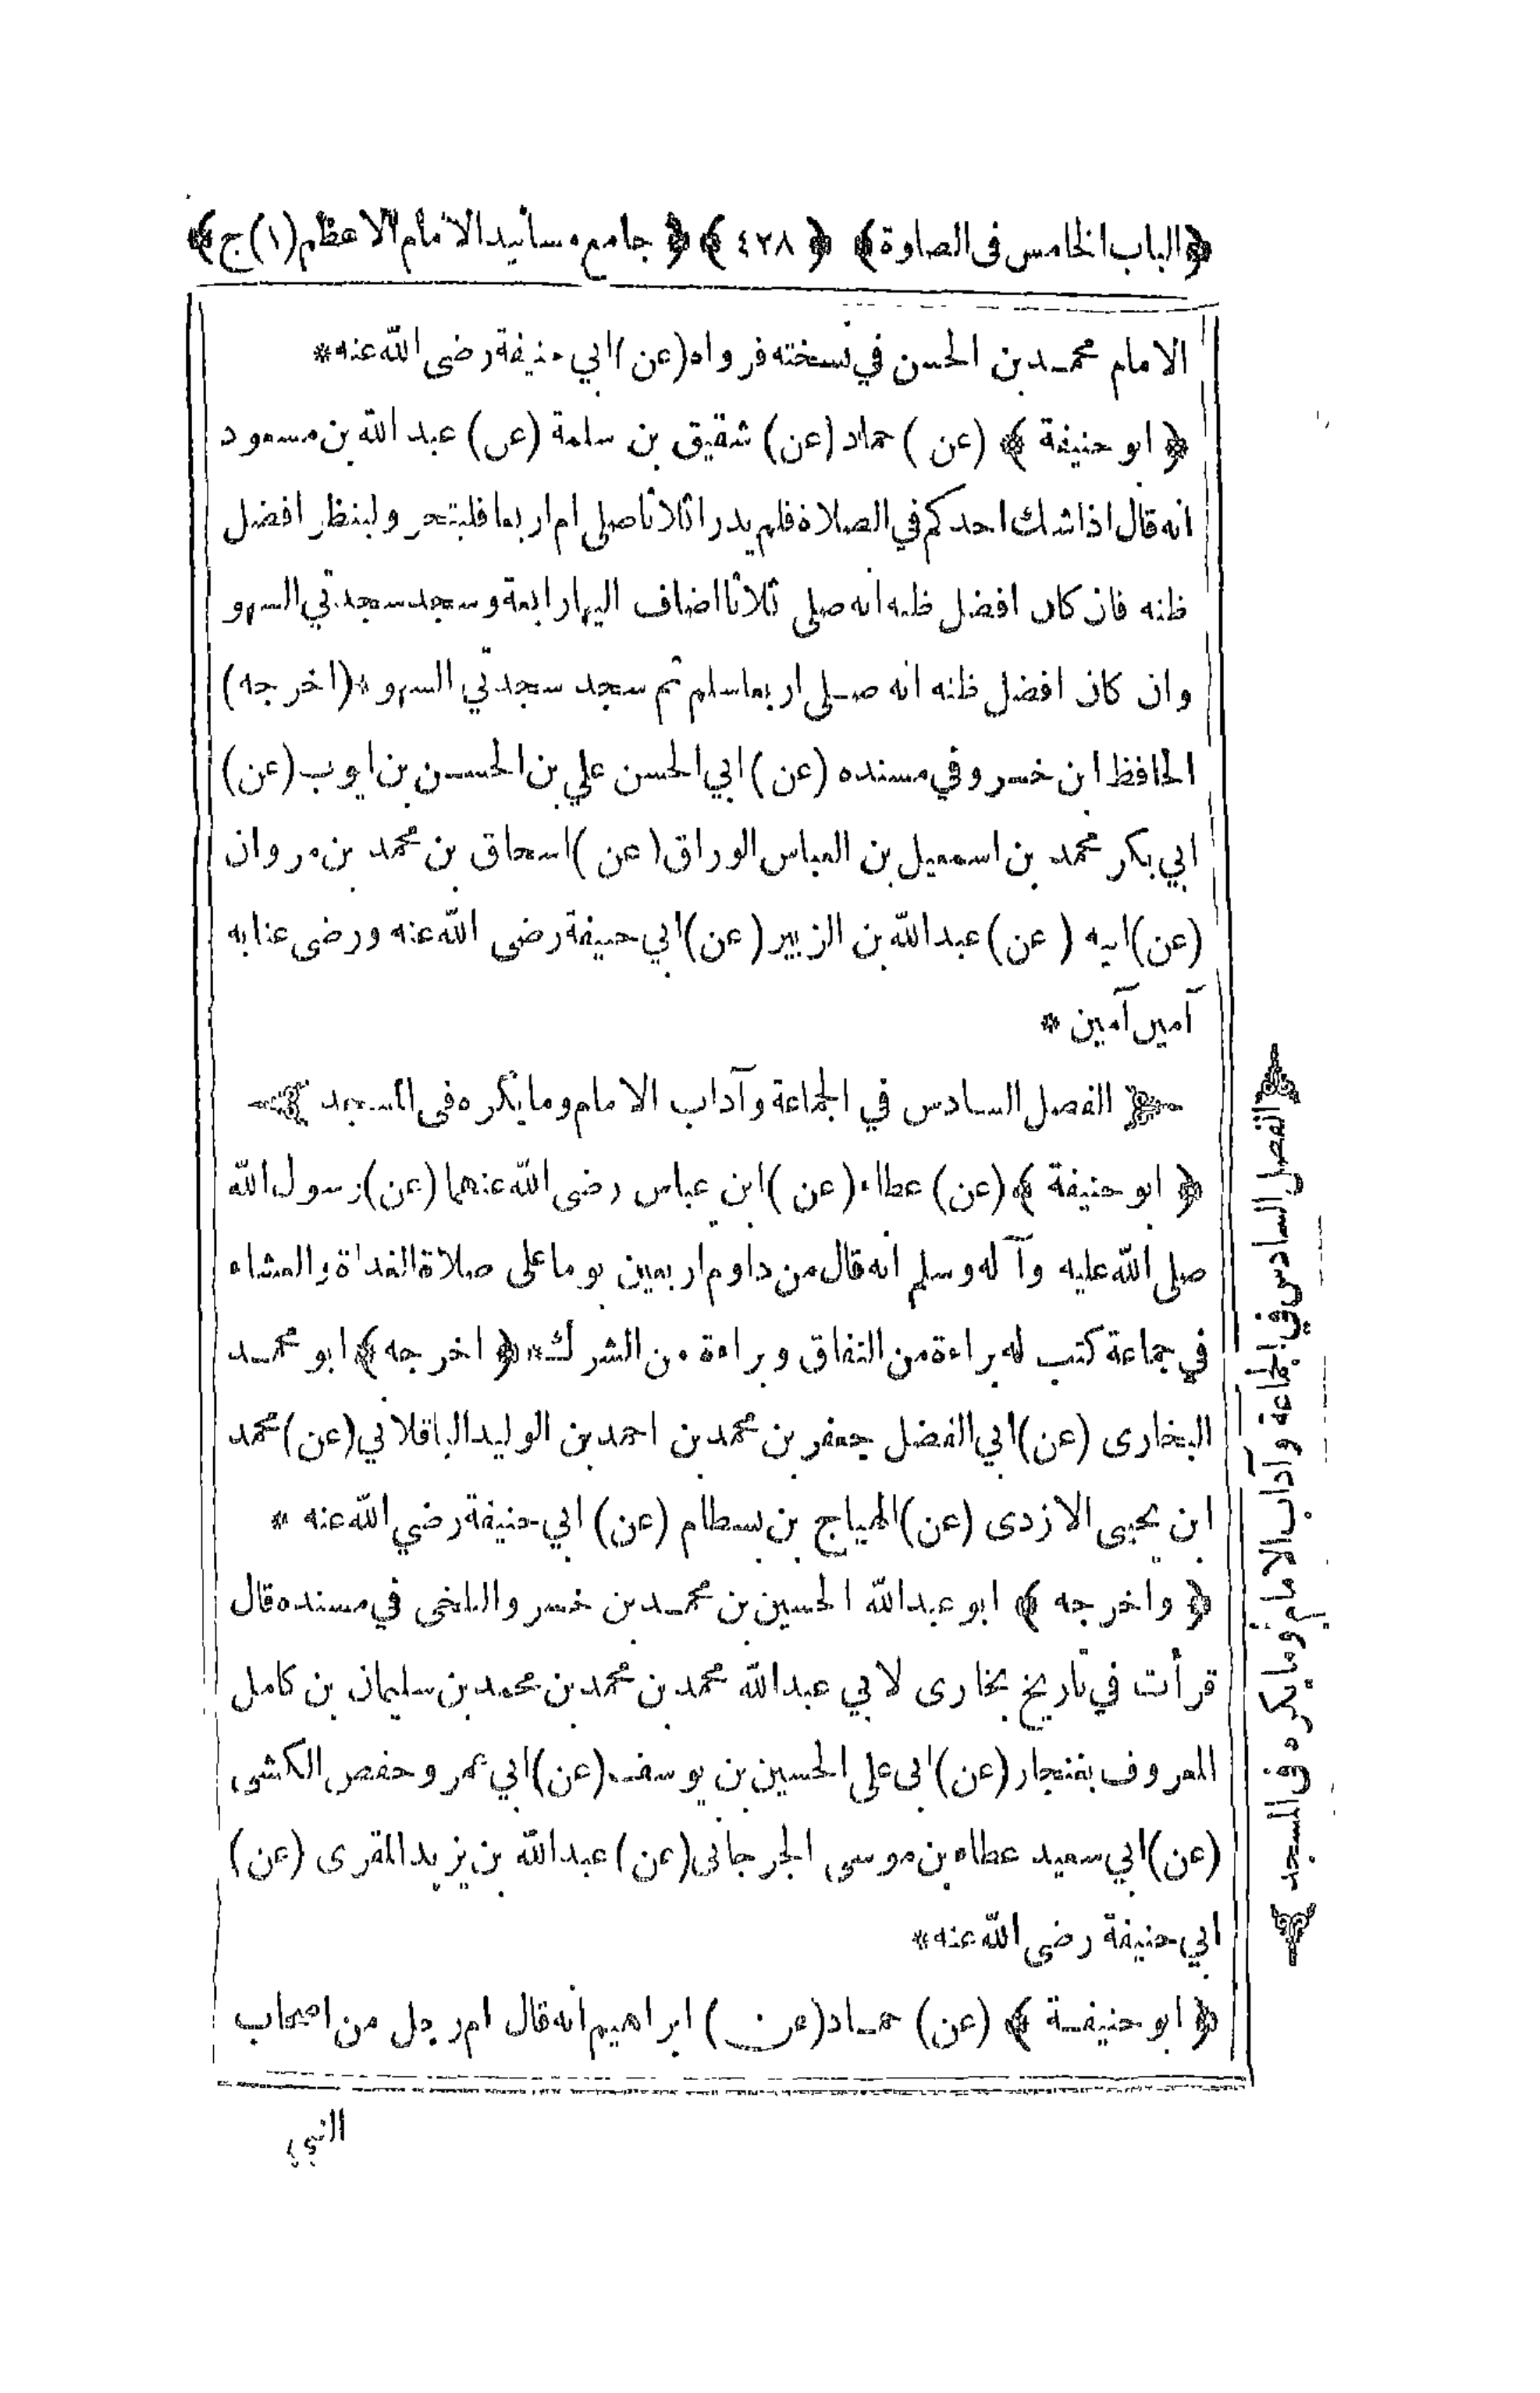 ﴿الباب الخامس فى الصلوة﴾ ﴿٤٢٨﴾ ﴿جامع مسانيد الامام الاعظم (١) ج﴾
الامام محمد بن الحسن في نسخته فرواه (عن) ابي حنيفة رضى الله عنه *
﴿ ابو حنيفة ﴾ (عن) حماد (عن) شقيق بن سلمة (عن) عبد الله بن مسعود
انه قال اذا شك احدكم في الصلاة فلم يدر اثلاثا صلى ام اربعا فليتحر ولينظر افضل
ظنه فان كان افضل ظنه انه صلى ثلاثا اضاف اليها رابعة وسجد سجدتي السهو
وان كان افضل ظنه انه صلى اربعا سلم ثم سجد سجدتي السهو * (اخرجه)
الحافظ ابن خسرو في مسنده (عن) ابي الحسن علي بن الحسين بن ايوب (عن)
ابي بكر محمد بن اسمعيل بن العباس الوراق (عن) اسحاق بن محمد بن مروان
(عن) ابيه (عن) عبد الله بن الزبير (عن) ابي حنيفة رضى الله عنه ورضى عنا به
آمين آمين *
الفصل السادس في الجماعة وآداب الامام وما يكره فى المسجد
﴿ ابو حنيفة ﴾ (عن) عطاء (عن) ابن عباس رضى الله عنهما (عن) رسول الله
صلى الله عليه وآله وسلم انه قال من داوم اربعين يوما على صلاة الغداة والعشاء
في جماعة كتب له براءة من النفاق وبراءة من الشرك * ﴿ اخرجه ﴾ ابو محمد
البخارى (عن) ابي الفضل جعفر بن محمد بن احمد بن الوليد الباقلاني (عن) محمد
ابن يحيى الازدى (عن) الهياج بن بسطام (عن) ابي حنيفة رضي الله عنه *
﴿ واخرجه ﴾ ابو عبد الله الحسين بن محمد بن خسرو البلخى في مسنده قال
قرأت في تاريخ بخارى لابي عبد الله محمد بن محمد بن محمد بن سليمان بن كامل
المعروف بغنجار (عن) ابى على الحسين بن يوسف (عن) ابي عمرو حفص الكشى
(عن) ابي سعيد عطاء بن موسى الجرجانى (عن) عبد الله بن يزيد المقرى (عن)
ابي حنيفة رضى الله عنه *
﴿ ابو حنيفة ﴾ (عن) حماد (عن) ابراهيم انه قال ام رجل من اصحاب
النبي
الفصل السادس في الجماعة وآداب الامام وما يكره فى المسجد